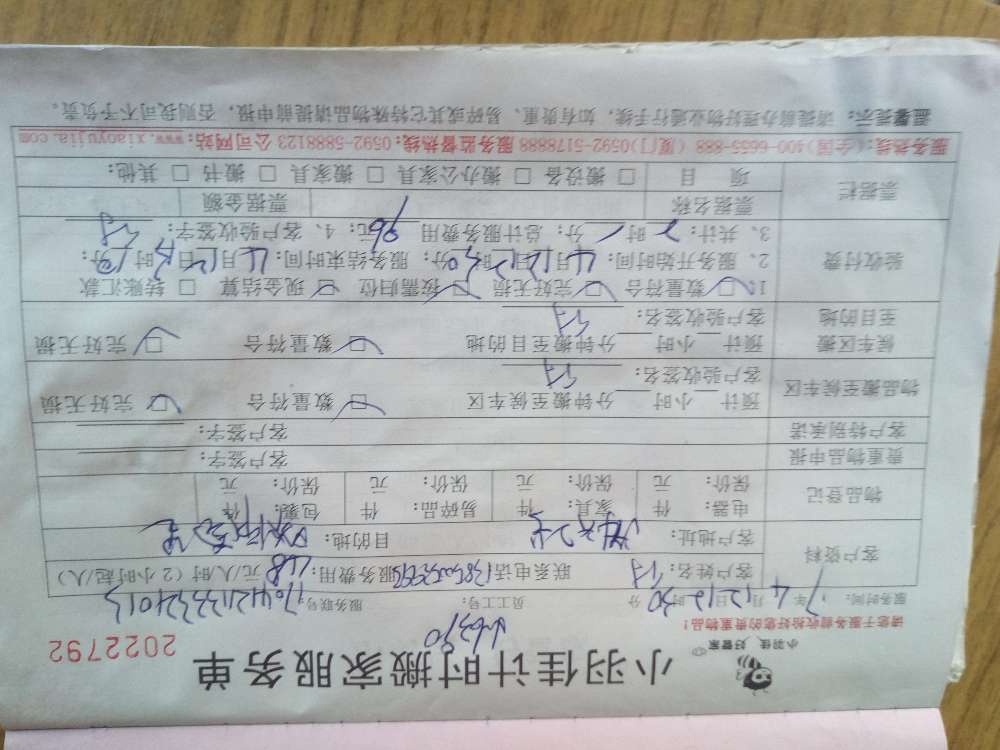 小羽佳计时搬家服务单
2022792
小羽佳 好管家
请您于服务前收拾好您的贵重物品!
服务时间: 17年4月12日12时30分 员工工号: 服务联号:
客户资料 客户姓名: 联系电话: 服务费用: 48元/人/时(2小时起/人)
客户地址: 目的地:
物品登记 电器: 件 家具: 件 易碎品: 件 包裹: 件
保价: 元 保价: 元 保价: 元 保价: 元
贵重物品申报 客户签字:
客户特别承诺 客户签字:
物品搬至候车区 预计 小时 分钟搬至候车区 □ 数量符合 □ 完好无损
客户验收签名:
候车区搬至目的地 预计 小时 分钟搬至目的地 □ 数量符合 □ 完好无损
客户验收签名:
验收付费 1、□ 数量符合 □ 完好无损 □ 按需归位 □ 现金结算 □ 转账汇款
2、服务开始时间: 4月12日12时30分; 服务结束时间: 4月12日 时 分;
3、共计: 2时 分; 总计服务费用 96元; 4、客户验收签字:
票据栏 票据名称 票据金额
项 目 □ 搬设备 □ 搬办公家具 □ 搬家具 □ 搬书 □ 其他:
服务热线:(全国)400-6655-888 (厦门)0592-5178888 服务监督热线:0592-5888123 公司网站:www.xiaoyujia.com
温馨提示: 请提前办理好物业通行手续, 如有贵重、易碎或其它特殊物品请提前申报, 否则我司不予负责。